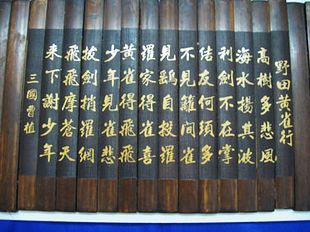 野田黃雀行
高樹多悲風
海水揚其波
利劍不在掌
結友何須多
不見籬間雀
見鷂自投羅
羅家得雀喜
黃雀得飛飛
少年見雀悲
拔劍捎羅網
飛飛摩蒼天
來下謝少年
三國曹植